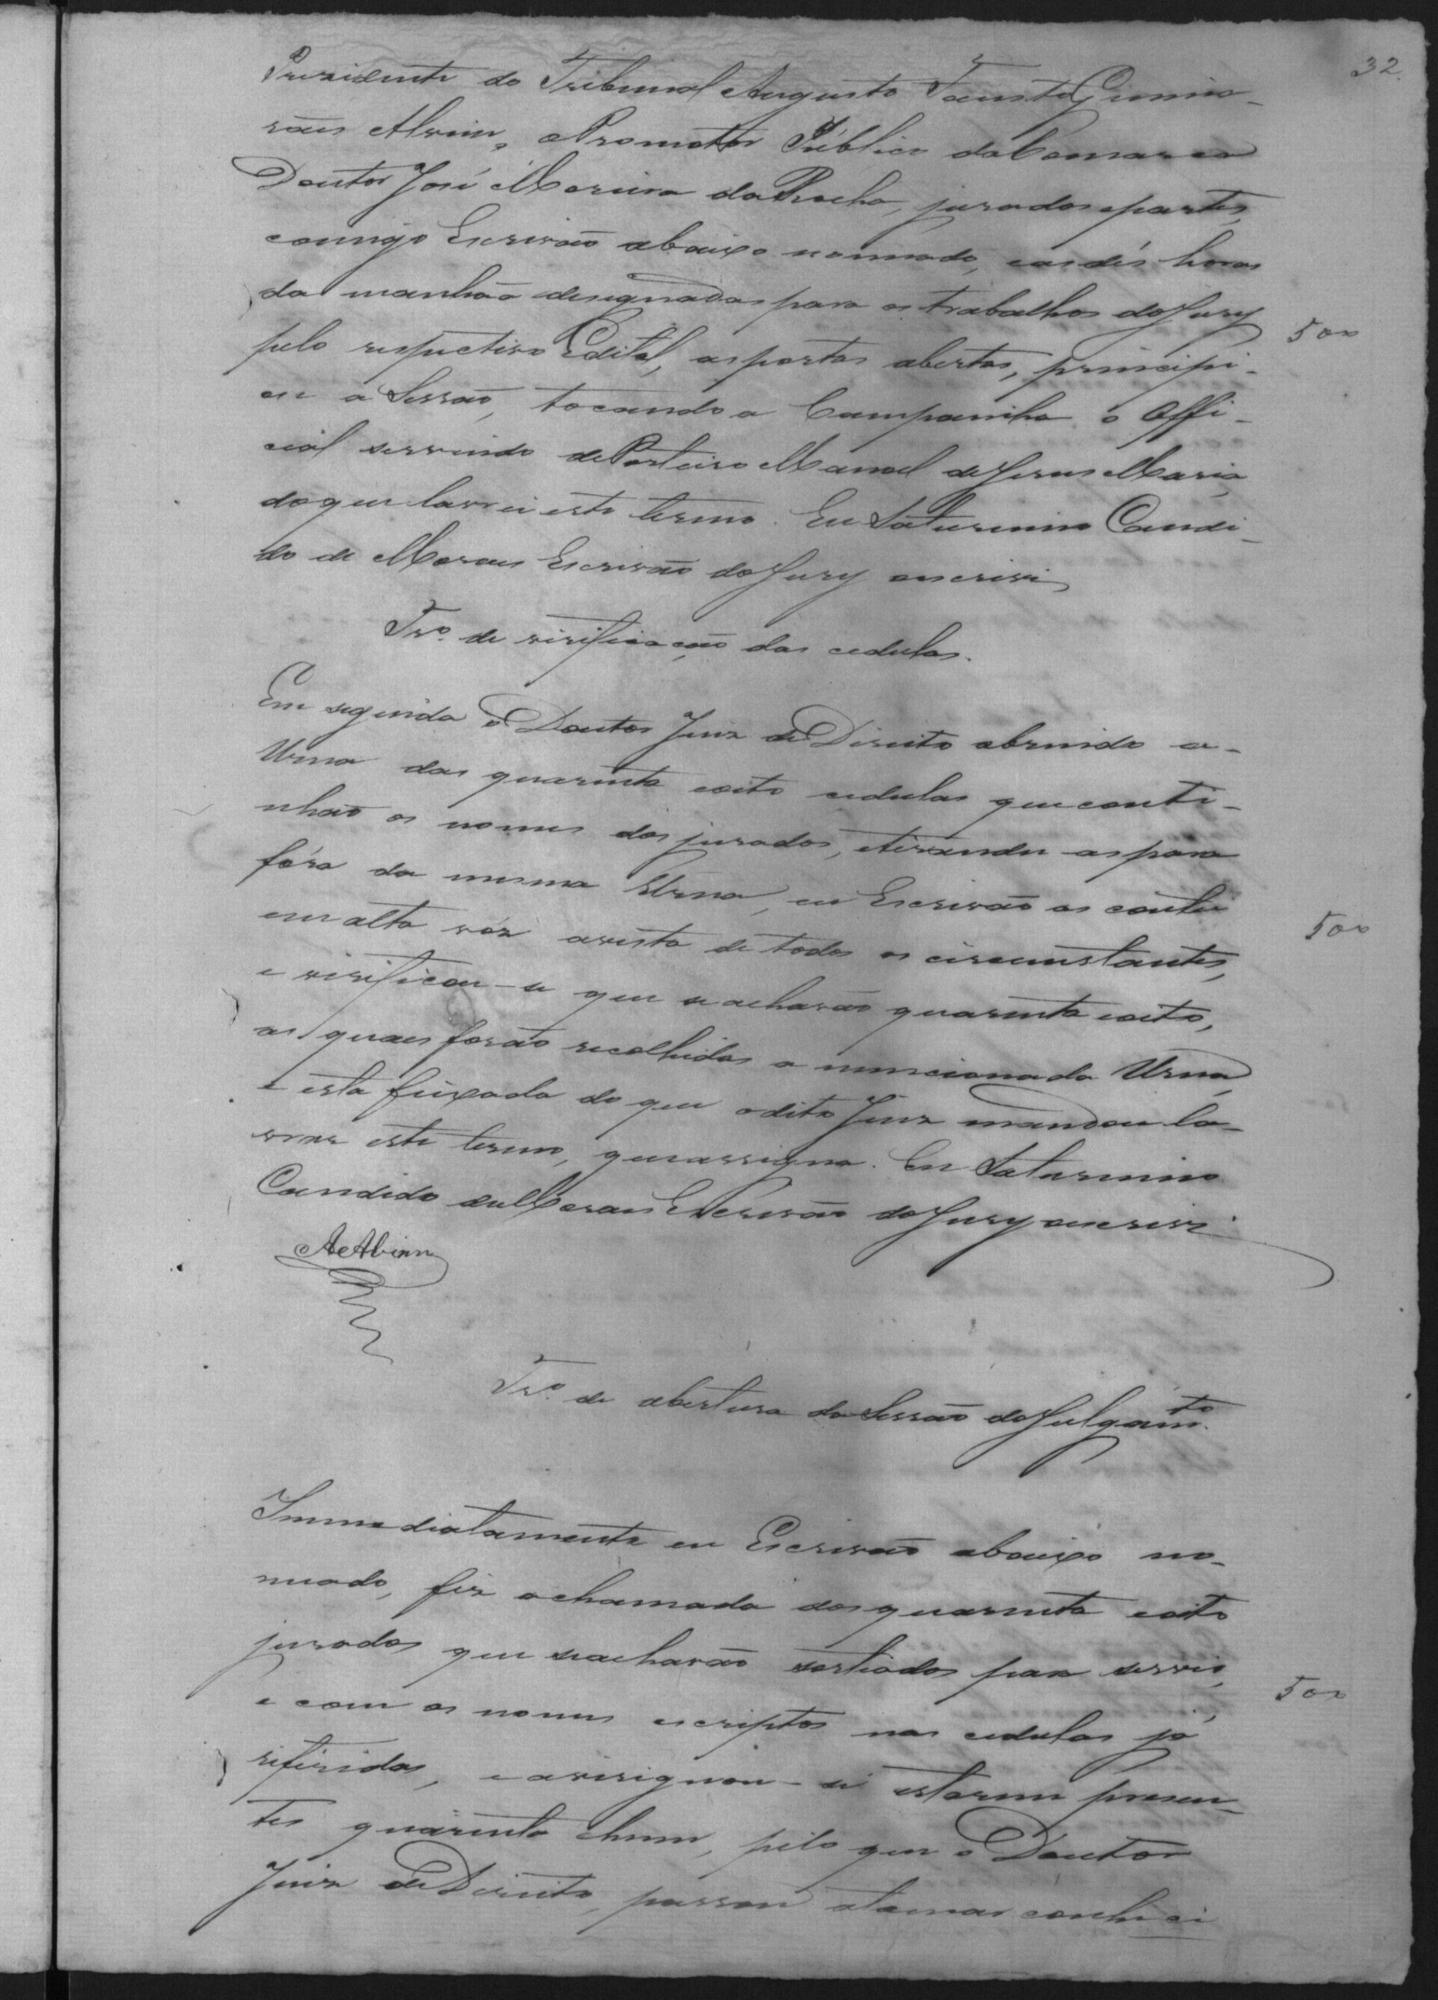 32
Presidente do Tribunal Augusto Fausto Guima-
rães Alvim, o Promotor Público da Comarca
Doutor José Moreira da Rocha, jurados e partes,
comigo Escrivão abaixo nomeado, as dés horas
da manhãa designadas para os trabalhos do Jury
500
pelo respectivo Edital, as portas abertas, principi-
ou a Sessão, tocando a Campainha o Offi-
cial servindo de Porteiro Manoel de Jesus Maria,
do que lavrei este termo. Eu Saturnino Candi-
do de Moraes Escrivão do Jury o escrivi
Trº. de virificação das cedulas.
Em seguida o Doutor Juiz de Direito abrindo a
Urna das quarenta e oito cedulas que conti-
nhão os nomes dos jurados, e tirando as para
fóra da mesma Urna, eu Escrivão as contei
500
em alta vóz a vista de todos os circumstantes,
e virificou-se que se acharão quarenta e oito,
as quaes forão recolhidas a mencionada Urna,
e esta feixada do que o dito Juiz mandou la-
vrar este termo, que assigna. Eu Saturnino
Candido de Moraes Escrivão do Jury o escrivi
AeAlvim
Trº. de abertura da Sessão do Julgamto.
Immediatamente eu Escrivão abaixo no-
meado, fiz a chamada dos quarenta e oito
jurados que se acharão sortiados para servir,
500
e com os nomes escriptos nas cedulas já
rifiridas, e avirignou-se estarem presen-
tes quarenta e hum, pelo que o Doutor
Juiz de Direito, passou a tomar conheci